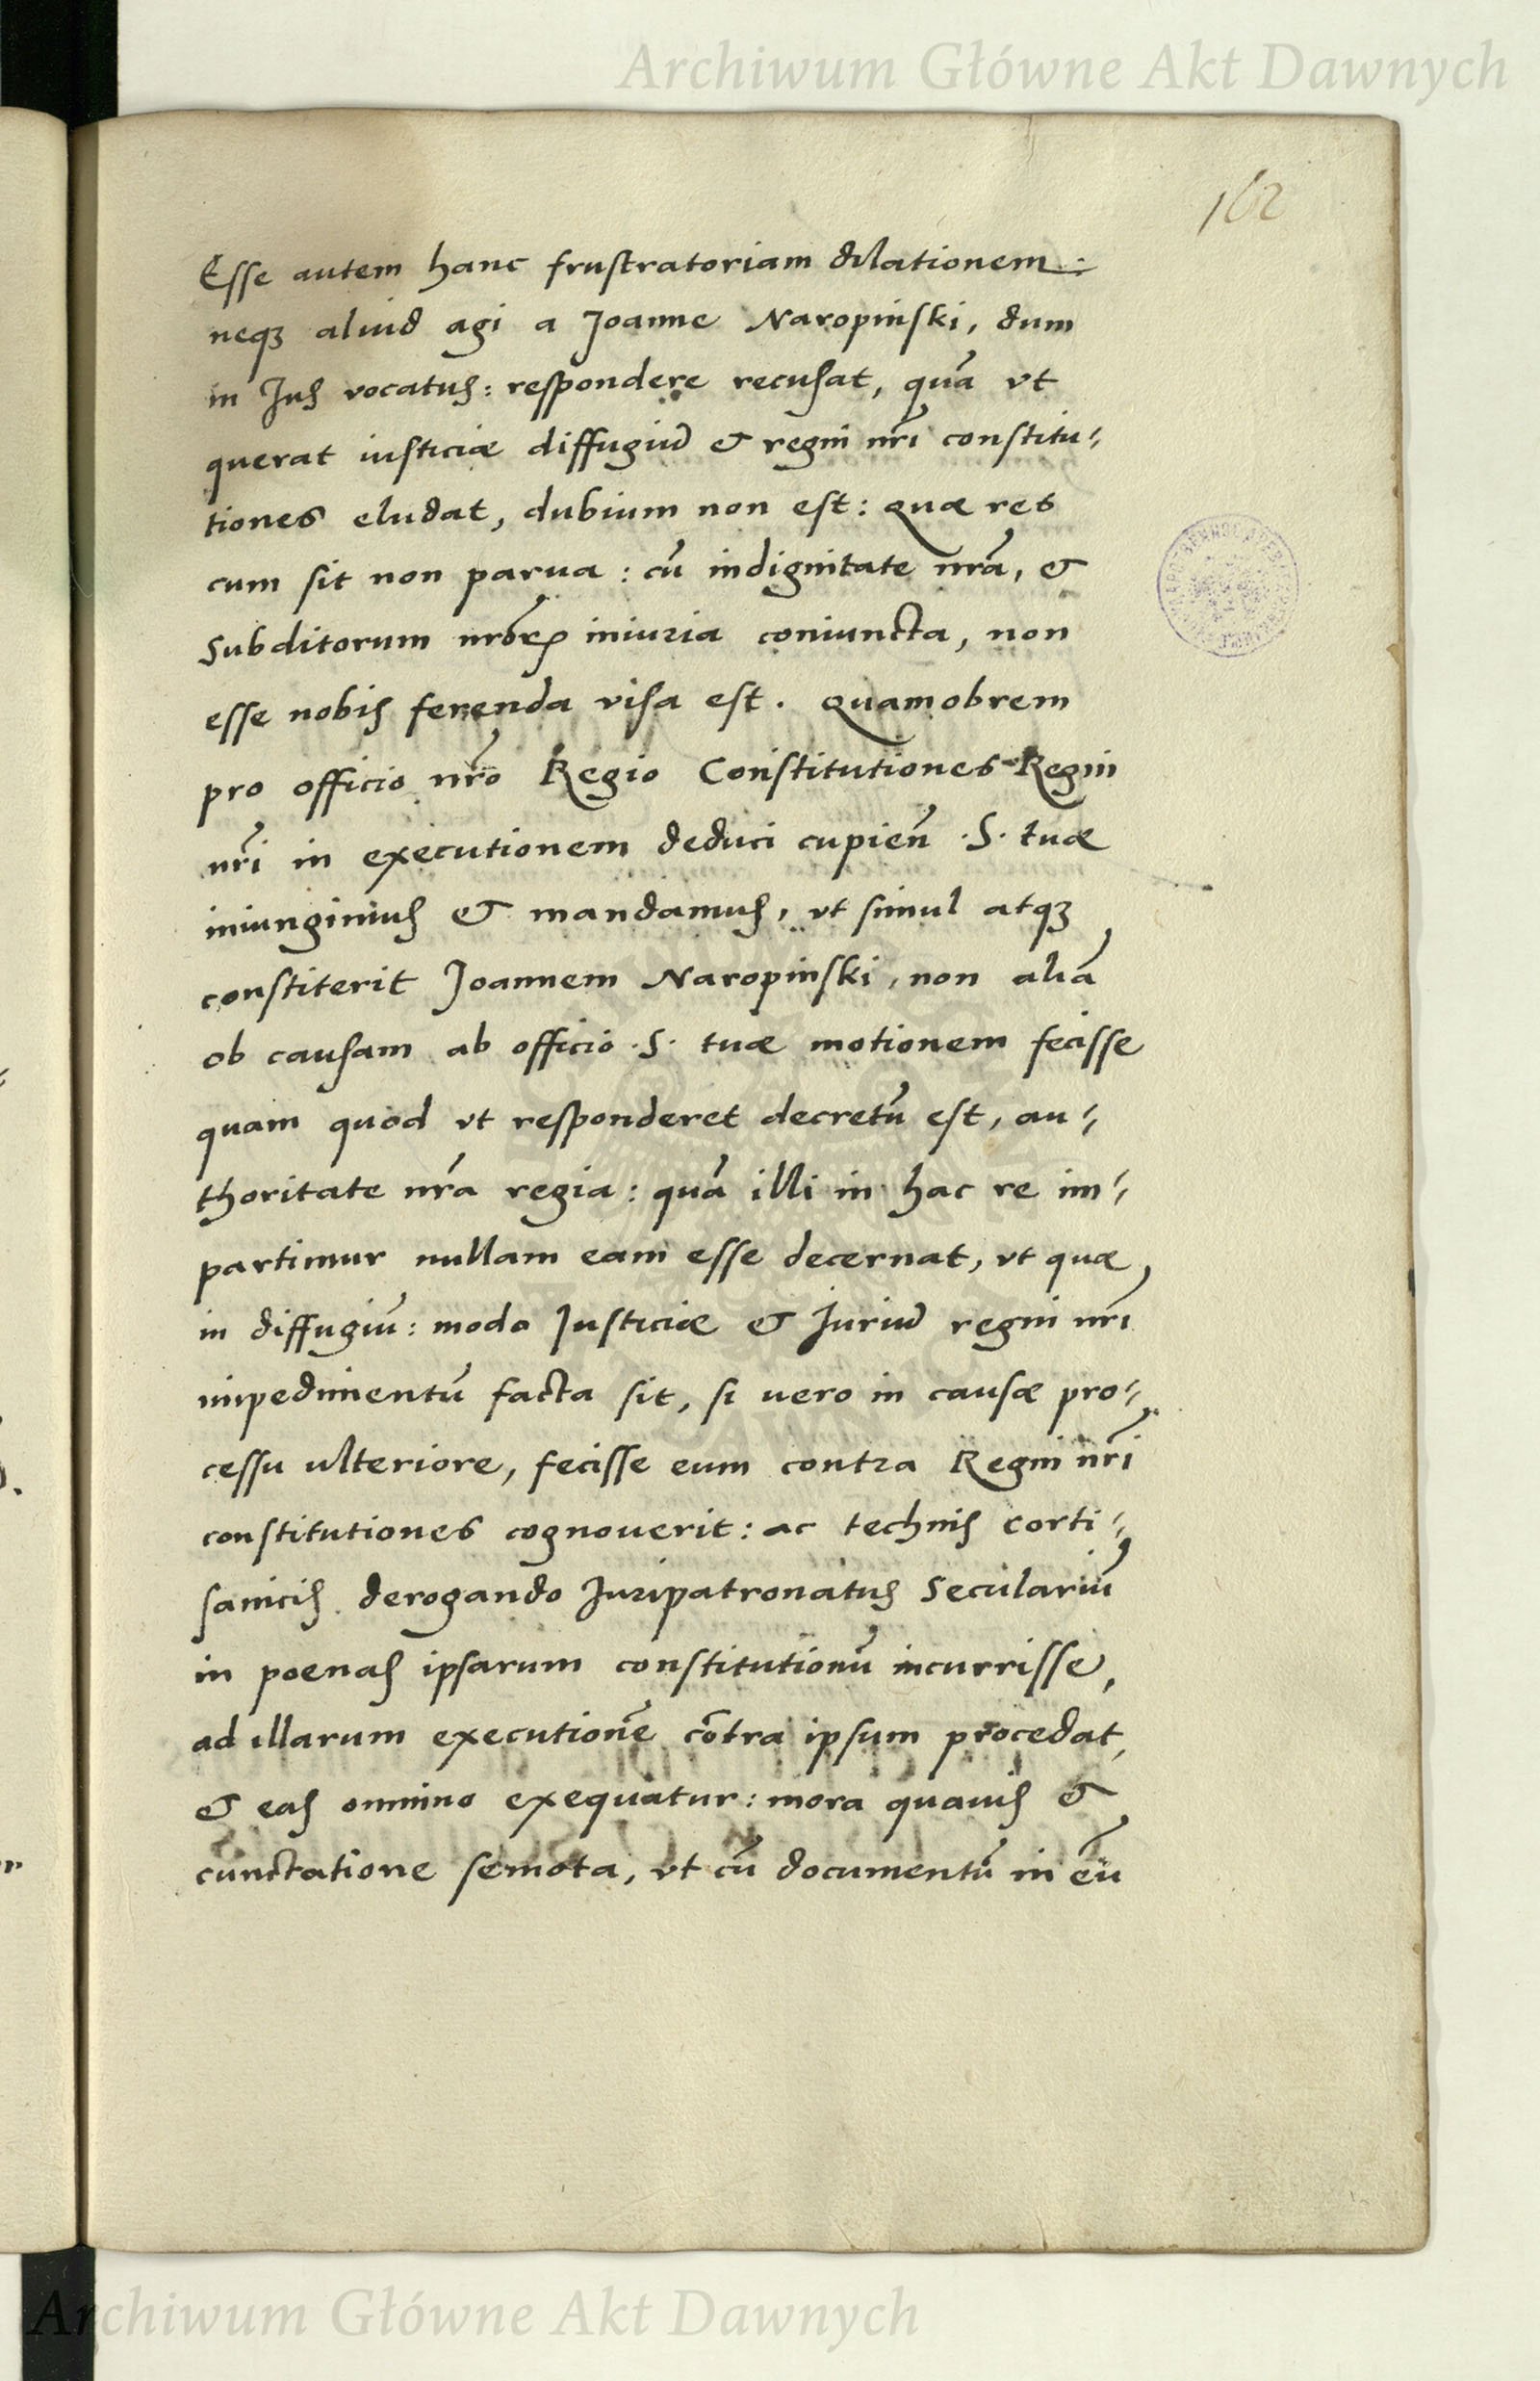 Archiwum Główne Akt Dawnych
162
Esse autem hanc frustratoriam dilationem:
neqȝ aliud agi a Joanne Naropinski, dum
in Jus vocatus: respondere recusat, quā vt
querat iusticiæ diffugiū & regni nr̄i constitu-
tiones eludat, dubium non est: Quæ res
cum sit non parua: cū indignitate nr̄a, &
Subditorum nr̄oꝝ iniuria coniuncta, non
esse nobis ferenda visa est. Quamobrem
pro officio nr̄o Regio Constitutiones Regni
nr̄i in executionem deduci cupien̄ .S. tuæ
iniungimus & mandamus, vt simul atqȝ
constiterit Joannem Naropinski, non aliā
ob causam ab officio .S. tuæ motionem fecisse
quam quod vt responderet decretū est, au-
thoritate nr̄a regia: quā illi in hac re im-
partimur nullam eam esse decernat, vt quæ
in diffugiū: modo Justiciæ & Juriū regni nr̄i
impedimentū facta sit, si vero in causæ pro-
cessu vlteriore, fecisse eum contra Regni nr̄i
constitutiones cognouerit: ac technis corti-
sanicis derogando Juripatronatus Seculariū
in poenas ipsarum constitutionū incurrisse,
ad illarum executionē cōtra ipsum procedat,
& eas omnino exequatur: mora quauis &
cunctatione semota, vt cū documentū in eū
Archiwum Główne Akt Dawnych